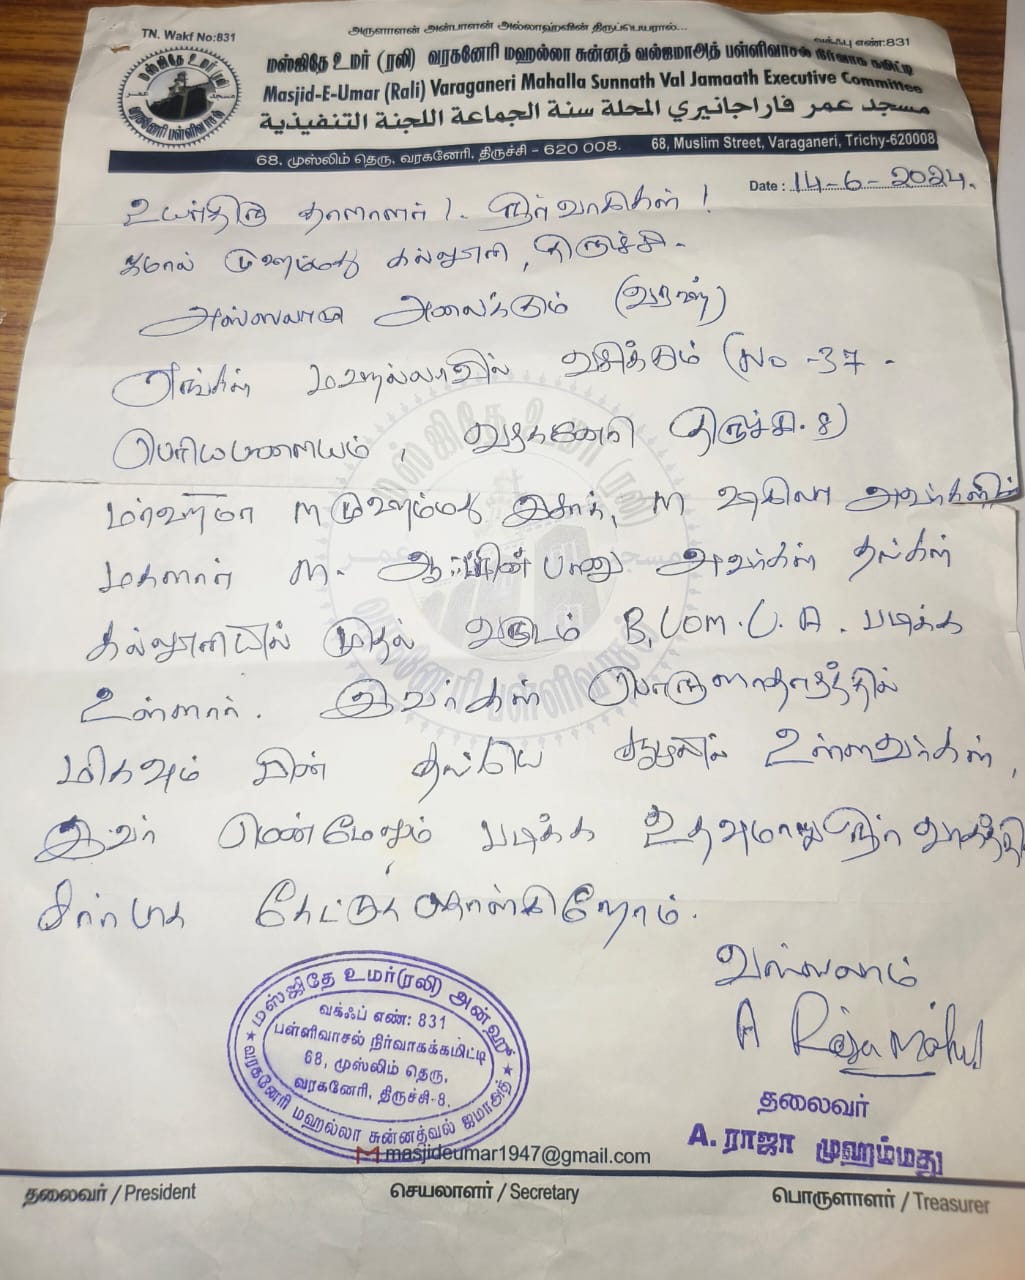 அருளாளன் அன்பாளன் அல்லாஹ்வின் திருப்பெயரால்...
TN. Wakf No:831
வக்ஃபு எண்:831
மஸ்ஜிதே உமர் (ரலி) வரகனேரி மஹல்லா சுன்னத் வல்ஜமாஅத் பள்ளிவாசல் நிர்வாக கமிட்டி
Masjid-E-Umar (Rali) Varaganeri Mahalla Sunnath Val Jamaath Executive Committee
مسجد عمر فاراجانيري المحلة سنة الجماعة اللجنة التنفيذية
68. முஸ்லிம் தெரு, வரகனேரி, திருச்சி - 620 008. 68, Muslim Street, Varaganeri, Trichy-620008
Date : 14-6-2024.
உயர்திரு தாளாளர் / நிர்வாகிகள் !
ஜமால் முஹம்மது கல்லூரி, திருச்சி.
அஸ்ஸலாமு அலைக்கும் (வரஹ்)
எங்கள் மஹல்லாவில் வசிக்கும் (No -37 -
வரகனேரி திருச்சி.8)
மர்ஹூம் M முஹம்மது இசாக், M அவர்களின்
மகளார் M. பானு அவர்கள் தங்கள்
கல்லூரியில் முதல் வருடம் B.Com.C.A. படிக்க
உள்ளார். இவர்கள் பொருளாதாரத்தில்
மிகவும் பின் தங்கிய சூழலில் உள்ளவர்கள்,
இவர் மென்மேலும் படிக்க உதவுமாறு நிர்வாகத்தின்
சார்பாக கேட்டுக் கொள்கிறோம்.
வஸ்ஸலாம்
A Raja Mohd
தலைவர்
A. ராஜா முஹம்மது
மஸ்ஜிதே உமர்(ரலி) அன்ஹூ
வக்ஃப் எண்: 831
பள்ளிவாசல் நிர்வாகக்கமிட்டி
68, முஸ்லிம் தெரு,
வரகனேரி, திருச்சி-8.
வரகனேரி மஹல்லா சுன்னத்வல் ஜமாஅத்
masjideumar1947@gmail.com
தலைவர் / President செயலாளர் / Secretary பொருளாளர் / Treasurer